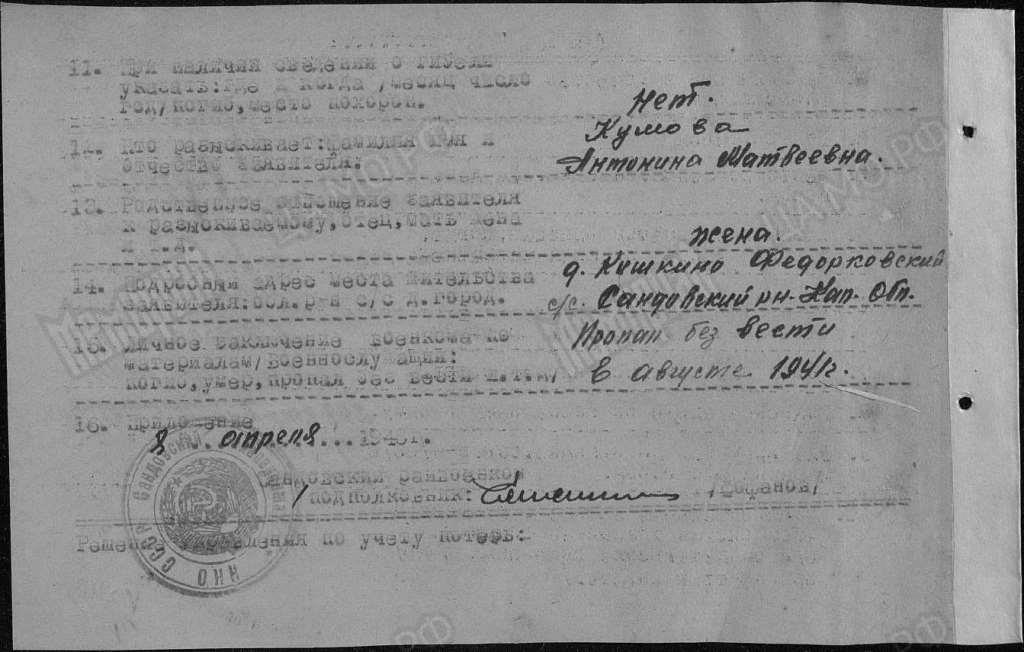 11. При наличии сведений о гибели
указать:где и когда /месяц число
год/погиб,место похорон.
Нет.
12. Кто разыскивает:фамилия имя и
отчество заявителя:
Кумова
Антонина Матвеевна.
13. Родственное отношение заявителя
к разыскиваемому,отец,мать жена
и т.д.
жена.
14. Подробный адрес места жительства
заявителя:обл.р-н с/с д.город.
д. Кишкино Федорковский
с/с. Сандовский рн. Кал. Обл.
15. Личное заключение военкома по
материалам/военнослу ащий:
погиб,умер,пропал без вести и.т.м/
Пропал без вести
в августе 1941г.
16. Приложение
8 . апреля ... 194 г.
Сандовский райвоенком
/подполковник: /
Решение управления по учету потерь:-
НКО СССР